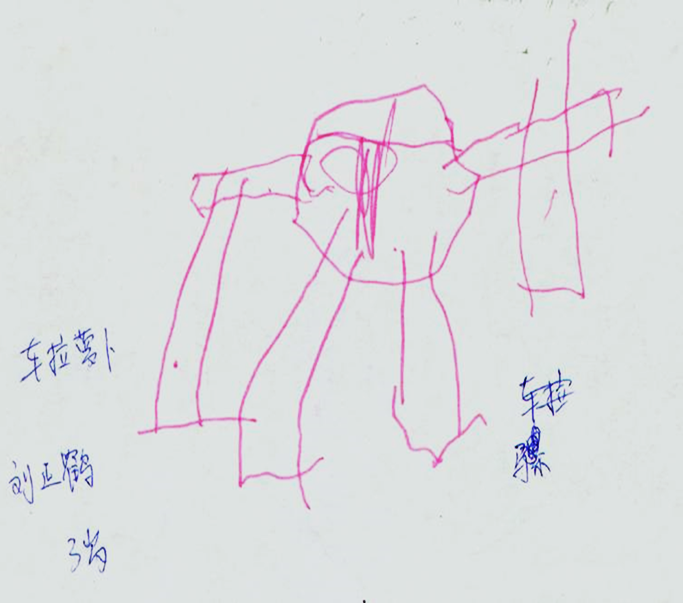 车拉萝卜
刘正鹤
3岁
车拉
骡